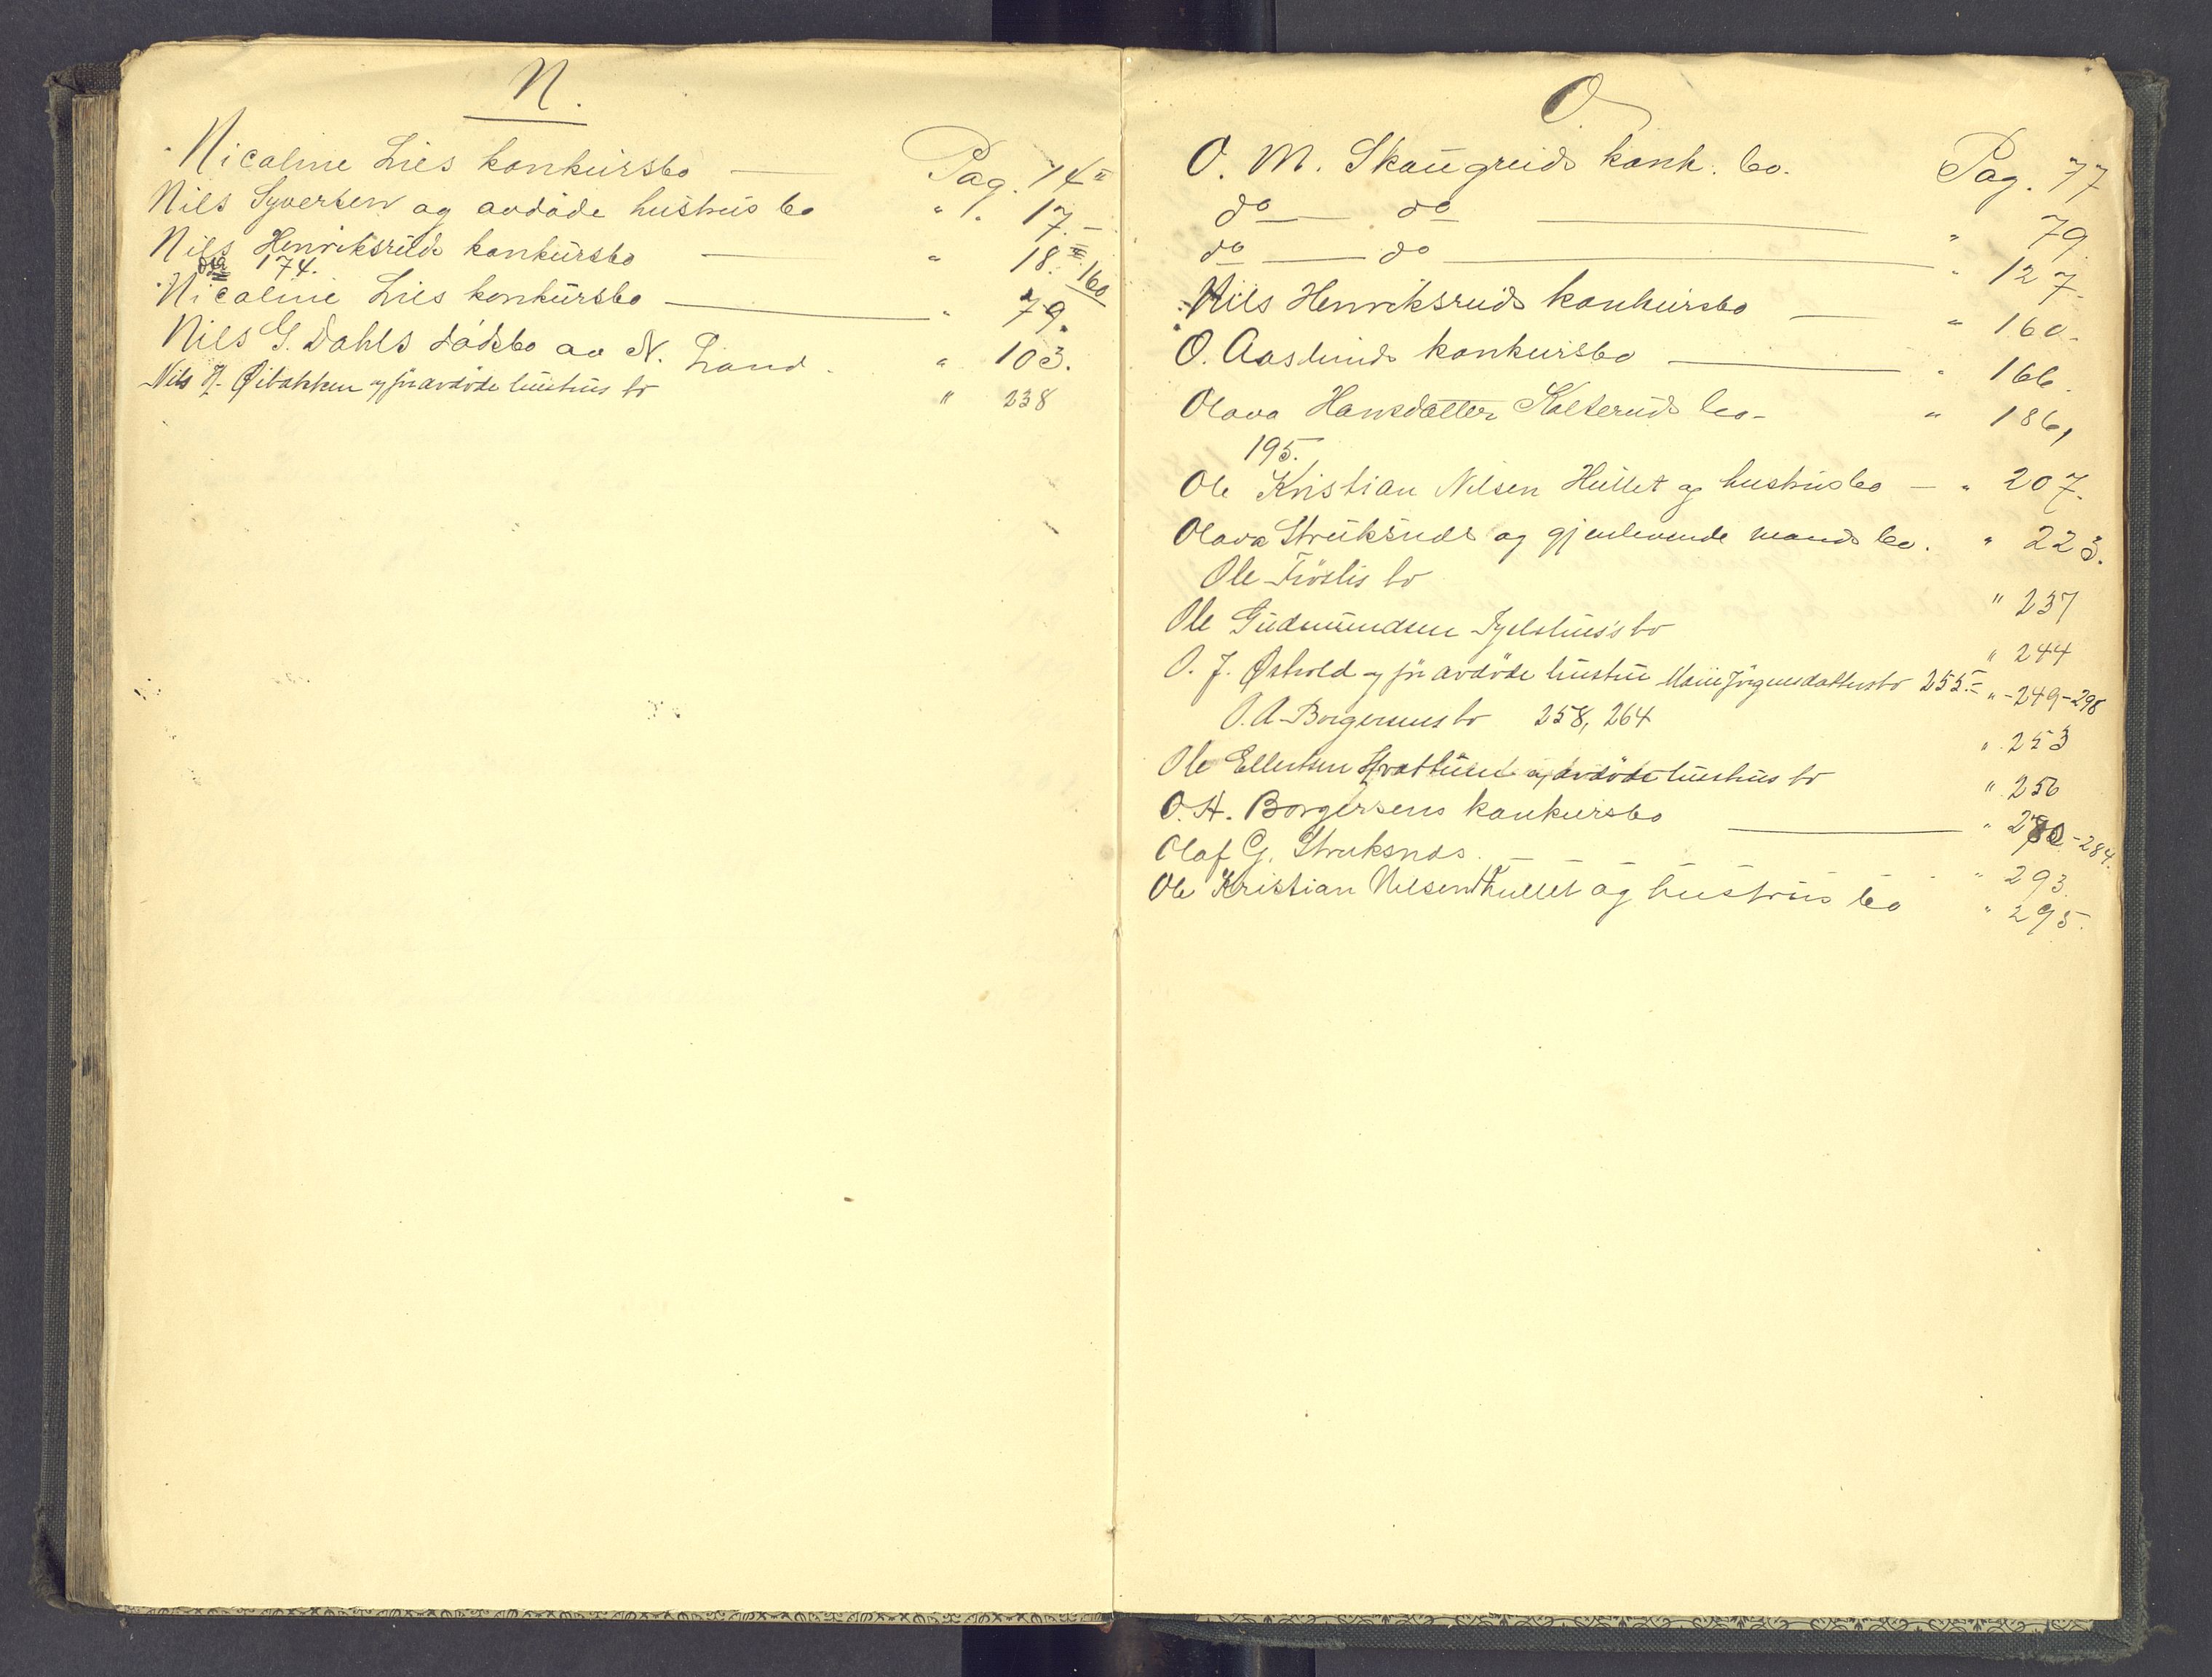 N.
Nicoline Lies konkursbo Pag. 14
Nils Syversen og avdøde hustrus bo " 17.
Nils Henriksruds konkursbo " 18. 160
174.
Nicoline Lies konkursbo " 79.
Nils G. Dahls dødsbo av N. Land. " 103.
Nils H. Øibakken og før avdøde hustrus bo " 238
O.
O. M. Skaugreids konk. bo. Pag. 77
do do " 79.
do do " 127.
Nils Henriksruds konkursbo " 160.
O. Aaslunds konkursbo " 166.
Olava Hansdatter Kolteruds bo " 186,
195.
Ole Kristian Nilsen Hullet og hustrus bo " 207.
Olava Struksnes og gjenlevende mands bo. " 223.
Ole Frøslis bo " 237
Ole Gudmundsen bo " 244
O. J. Østvold og før avdøde hustru Marie Jørgensdatters bo 255. " 249-298
O. A. Borgersens bo 258, 264 " 253
Ole Ellertsen og avdøde hustrus bo " 256
O. H. Borgersens konkursbo " 280-284.
Olaf G. Struksnæs " 293.
Ole Kristian Nilsen Hullet og hustrus bo " 295.